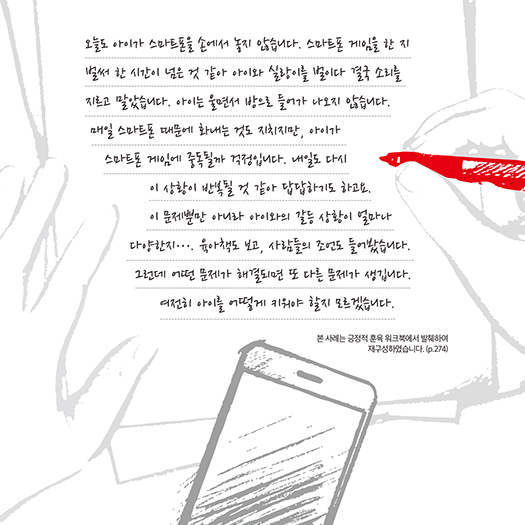 오늘도 아이가 스마트폰을 손에서 놓지 않습니다. 스마트폰 게임을 한 지
벌써 한 시간이 넘은 것 같아 아이와 실랑이를 벌이다 결국 소리를
지르고 말았습니다. 아이는 울면서 방으로 들어가 나오지 않습니다.
매일 스마트폰 때문에 화내는 것도 지치지만, 아이가
스마트폰 게임에 중독될까 걱정입니다. 내일도 다시
이 상황이 반복될 것 같아 답답하기도 하고요.
이 문제뿐만 아니라 아이와의 갈등 상황이 얼마나
다양한지···. 육아책도 보고, 사람들의 조언도 들어봤습니다.
그런데 어떤 문제가 해결되면 또 다른 문제가 생깁니다.
여전히 아이를 어떻게 키워야 할지 모르겠습니다.
본 사례는 긍정적 훈육 워크북에서 발췌하여
재구성하였습니다. (p.274)